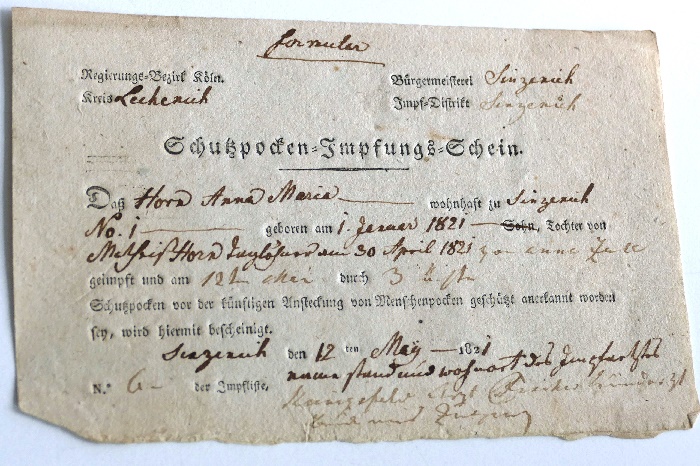 Formular
Regierungs-Bezirk Köln. Bürgermeisterei Sinzenich
Kreis Lechenich Impf-Distrikt Sinzenich
Schutzpocken-Impfungs-Schein.
Daß Horn Anna Maria wohnhaft zu Sinzenich
No. 1 geboren am 1. Januar 1821 Sohn, Tochter von
Horn am 30 April 1821
geimpft und am 12ten Mai durch 3
Schutzpocken vor der künftigen Ansteckung von Menschenpocken geschützt anerkannt worden
sey, wird hiermit bescheinigt.
Sinzenich den 12 ten May 1821
N.° 6 der Impfliste, name stand und wohnort des Impfarztes